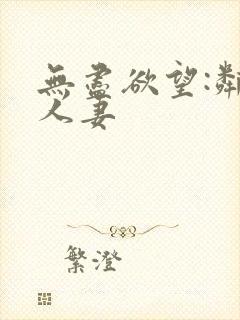 無盡欲望:鄰
人妻
繁澄